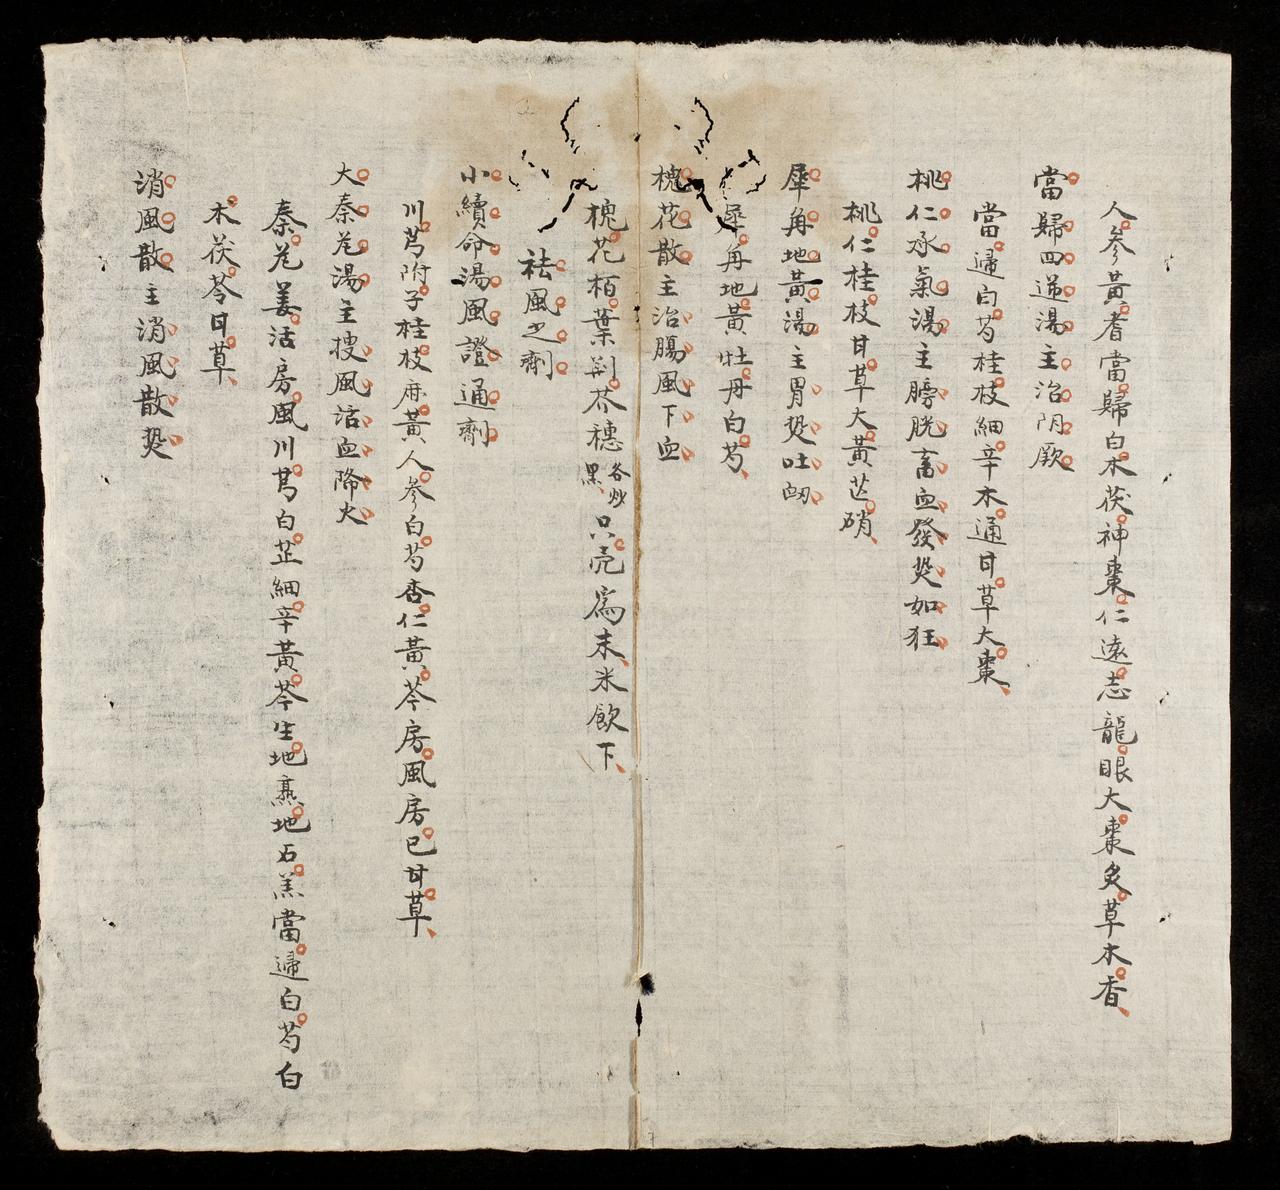 人參黃耆當歸白术茯神棗仁遠志龍眼大棗炙草木香
當歸四逆湯主治阴厥
當歸白芍桂枝細辛木通甘草大棗
桃仁承氣湯主膀胱畜血發熒如狂
桃仁桂枝甘草大黃芒硝
犀角地黃湯主胃熒吐衂
犀角地黃牡丹白芍
槐花散主治腸風下血
槐花栢葉荆芥穗各炒黑只壳為末米飲下
祛風之劑
小續命湯風證通劑
川芎附子桂枝麻黃人參白芍杏仁黃芩房風房已甘草
大秦艽湯主搜風活血降火
秦艽羌活房風川芎白芷細辛黃芩生地熟地石羔當歸白芍白
术茯苓甘草
消風散主消風散熒